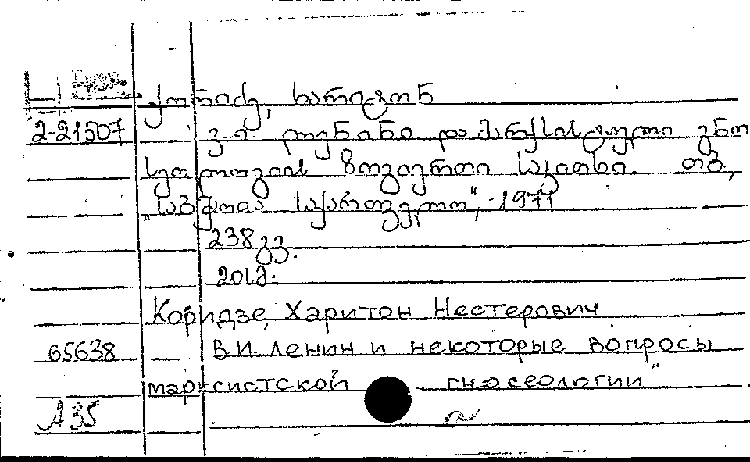 ქორიძე, ხარიტონ
2-21507 ვ.ი. ლენინი და მარქსისტული გნო
სეოლოგიის ზოგიერთი საკითხი. თბ.,
„საბჭოთა საქართველო", 1971
238 გვ.
Коридзе, Харитон Нестерович
65638 В.И. Ленин и некоторые вопросы
марксистской гносеологии"
А35